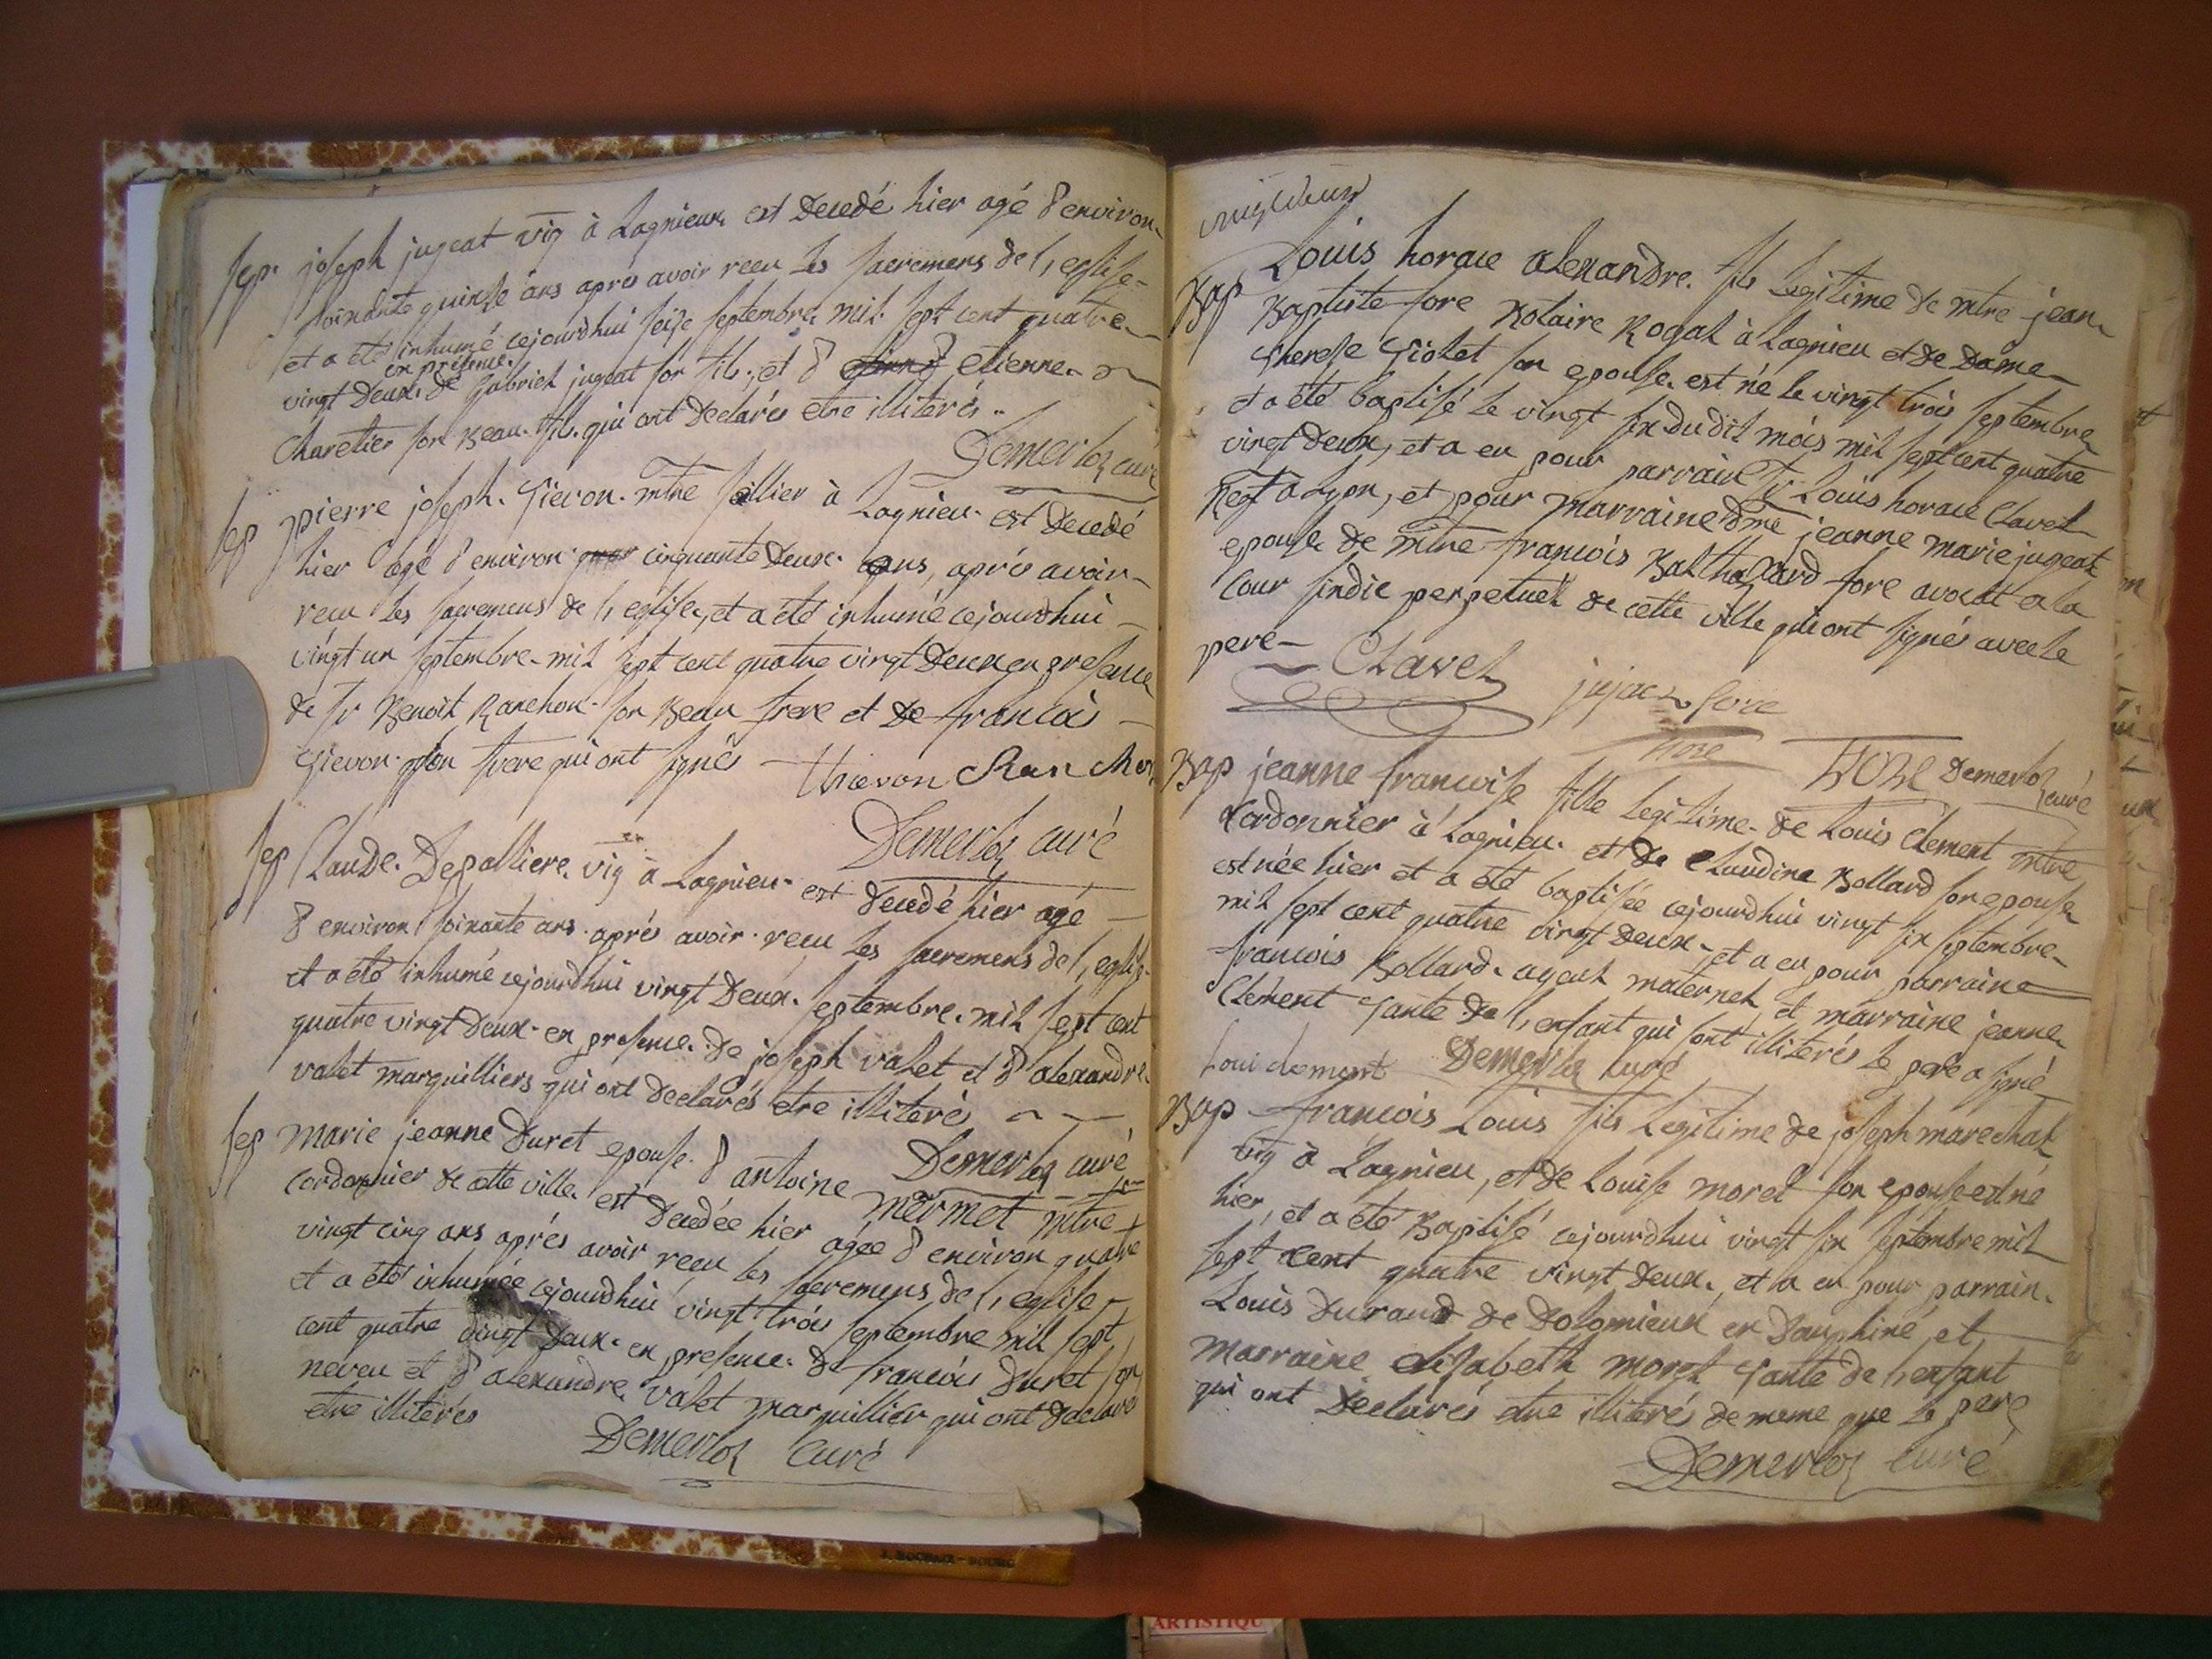 Sep. joseph jugeat vig à Lagnieux est Decedé hier agé d'environ
soixante quinse ans après avoir recu les sacremens de l'eglise
et a été inhumé cejourdhui seize septembre mil sept cent quatre
vingt Deux. en presence de Gabriel jugeat son fils. et d' etienne
Charetier son Beau fils. qui ont Declarés etre illiterés..
Demerloz curé
Sep pierre joseph. Tievon. mtre sellier à Lagnieu est Decedé
hier agé d'environ cinquante Deux ans, après avoir
recu les sacremens de l'eglise, et a été inhumé cejourdhui
vingt un septembre mil sept cent quatre vingt Deux en presence
de sr Benoit Ranchon son Beau frere et de francois
Tievon son frere qui ont signés Thievon Ranchon
Demerloz curé
Sep Claude. Depalliere. vig à Lagnieu est Decedé hier agé
d'environ soixante ans. après avoir recu les sacremens de l'eglise
et a été inhumé cejourdhui vingt Deux. septembre. mil sept cent
quatre vingt Deux. en presence. de joseph valet et d'alexandre
valet marguilliers qui ont Declarés etre illiterés
Demerloz curé
Sep Marie jeanne Duret epouse. d'antoine Mermet mtre
Cordonnier de cette ville est Decedée hier agée d'environ quatre
vingt cinq ans après avoir recu les sacremens de l'eglise
et a été inhumée cejourdhui vingt trois septembre mil sept
cent quatre vingt Deux. en presence. de francois Duret son
neveu et d'alexandre valet marguillier qui ont declarés
etre illiterés
Demerloz Curé
vingt deux
Bap Louis horace alexandre. fils Legitime de mtre jean
Baptiste fore Notaire Royal à Lagnieu et de Dame
Therese Tiolet son epouse. est né le vingt trois septembre
et a été baptisé le vingt six dudit mois mil sept cent quatre
vingt deux, et a eu pour parrain sr Louis horace Clavel
Negt a Lyon, et pour marraine dme jeanne marie jugeat
epouse de mtre francois Balthazard fore avocat a la
Cour sindic perpetuel de cette ville qui ont signés avec le
pere
Clavel jujat fore
fore fore Demerloz curé
Bap jeanne francoise fille Legitime de Louis Clement mtre
Cordonnier à Lagnieu. et de Claudine Bollard son epouse
est née hier et a été baptisée cejourdhui vingt six septembre
mil sept cent quatre vingt Deux. et a eu pour parrain
francois Bollard. ayeul maternel et marraine jeanne
Clement Tante de l'enfant qui sont illiterés le pere a signé
Loui clement Demerloz curé
Bap francois Louis fils Legitime de joseph marechal
vig à Lagnieu, et de Louise morel son epouse est né
hier, et a été Baptisé cejourdhui vingt six septembre mil
sept cent quatre vingt Deux. et a eu pour parrain.
Louis Durand de Dolomieux en Dauphiné, et
Marraine elizabeth morel Tante de l'enfant
qui ont Declarés etre illiterés de meme que le pere
Demerloz curé
J. ROCHAIX - BOURG
ARTISTIQU